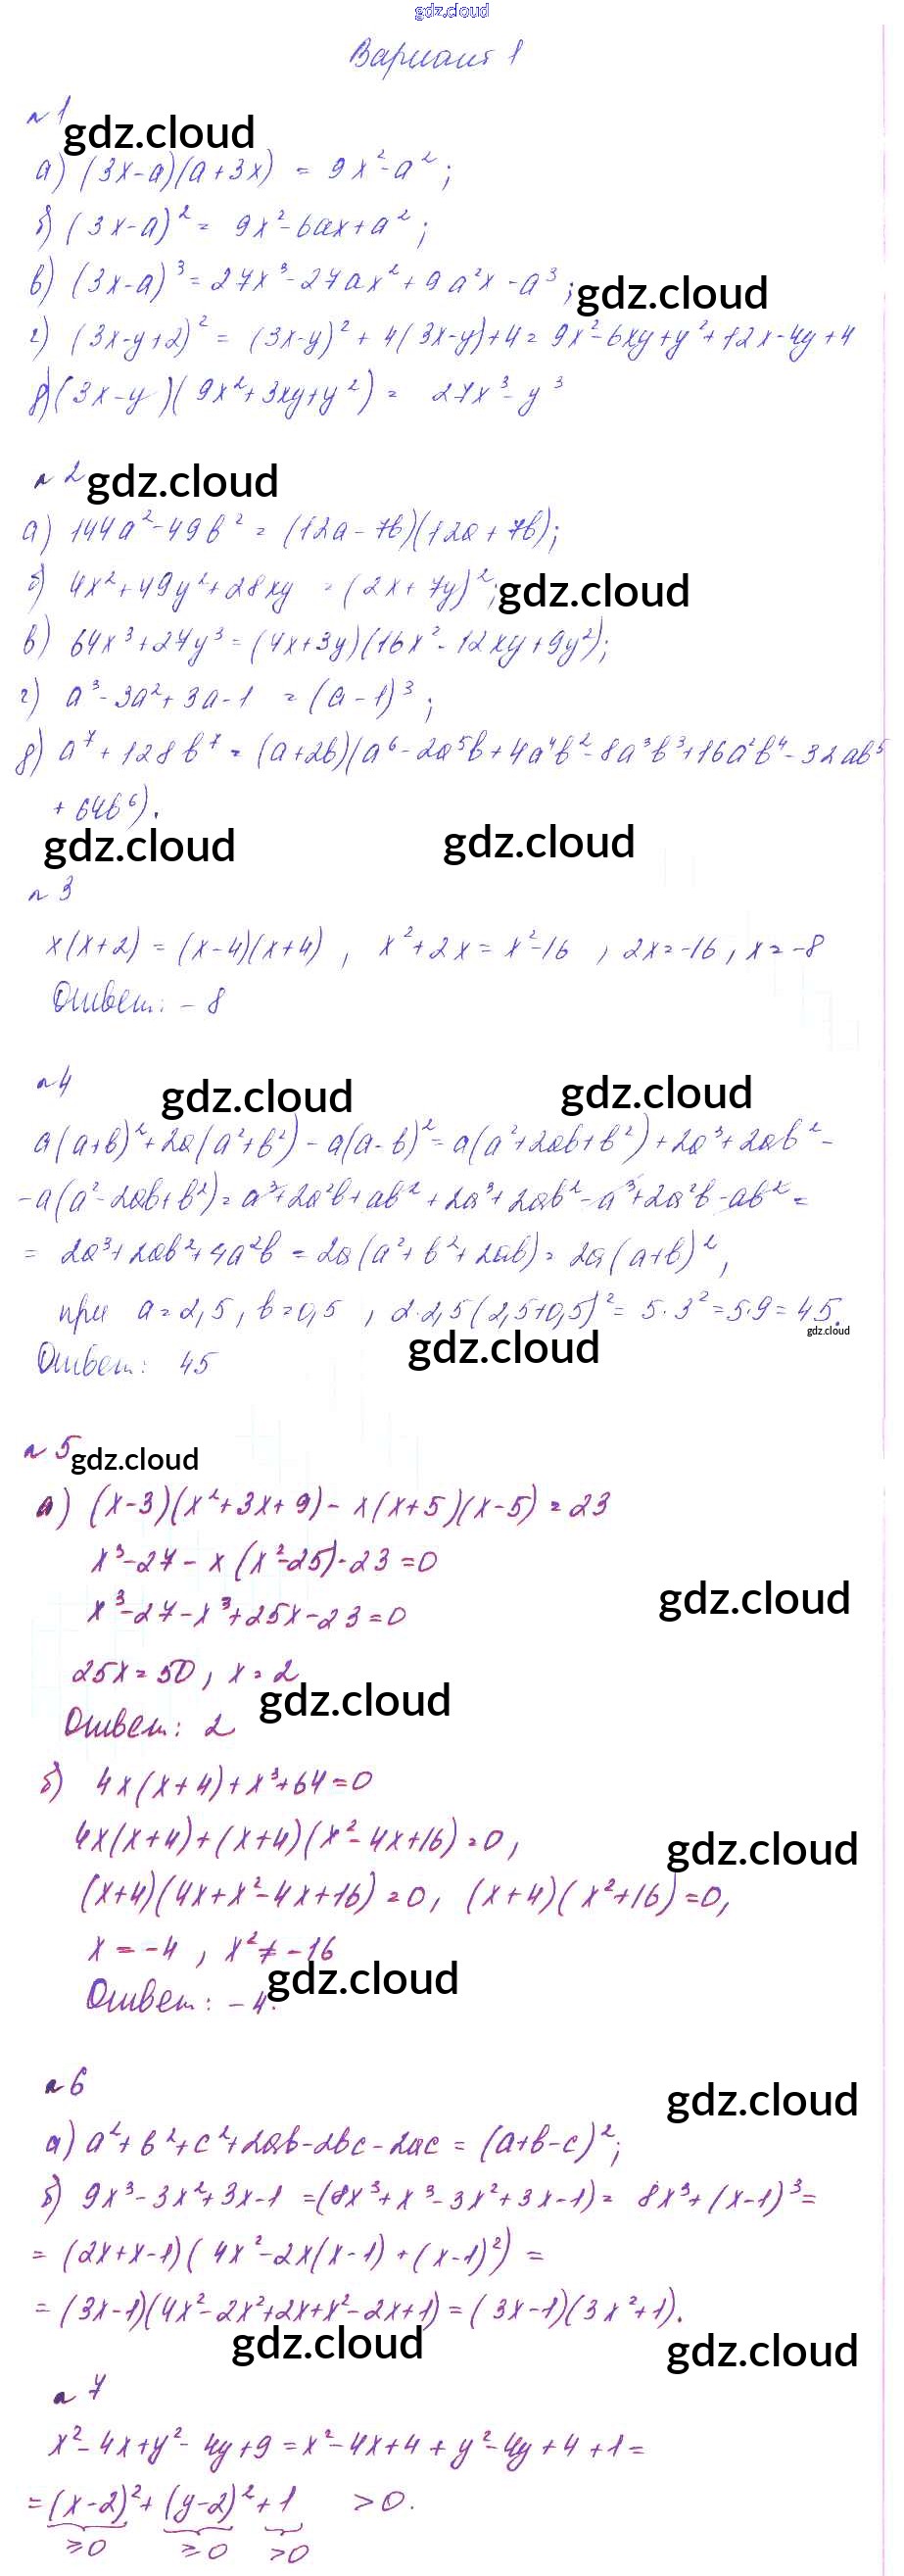 gdz.cloud
Вариант 1
№1
gdz.cloud
а) (3x-a)(a+3x) = 9x²-a²;
б) (3x-a)² = 9x²-6ax+a²;
в) (3x-a)³ = 27x³-27ax²+9a²x-a³;
gdz.cloud
г) (3x-y+2)² = (3x-y)²+4(3x-y)+4 = 9x²-6xy+y²+12x-4y+4
д) (3x-y)(9x²+3xy+y²) = 27x³-y³
№2
gdz.cloud
а) 144a²-49b² = (12a-7b)(12a+7b);
б) 4x²+49y²+28xy = (2x+7y)²;
gdz.cloud
в) 64x³+27y³ = (4x+3y)(16x²-12xy+9y²);
г) a³-3a²+3a-1 = (a-1)³;
д) a⁷+128b⁷ = (a+2b)(a⁶-2a⁵b+4a⁴b²-8a³b³+16a²b⁴-32ab⁵
+64b⁶).
gdz.cloud
gdz.cloud
№3
x(x+2) = (x-4)(x+4), x²+2x = x²-16, 2x=-16, x=-8
Ответ: -8
№4
gdz.cloud
gdz.cloud
a(a+b)²+2a(a²+b²)-a(a-b)² = a(a²+2ab+b²)+2a³+2ab²-
-a(a²-2ab+b²) = a³+2a²b+ab²+2a³+2ab²-a³+2a²b-ab² =
= 2a³+2ab²+4a²b = 2a(a²+b²+2ab) = 2a(a+b)²,
при a=2,5, b=0,5, 2·2,5(2,5+0,5)² = 5·3² = 5·9 = 45.
gdz.cloud
gdz.cloud
Ответ: 45
№5
gdz.cloud
а) (x-3)(x²+3x+9)-x(x+5)(x-5) = 23
x³-27-x(x²-25)-23=0
gdz.cloud
x³-27-x³+25x-23=0
25x=50, x=2
gdz.cloud
Ответ: 2
б) 4x(x+4)+x³+64=0
4x(x+4)+(x+4)(x²-4x+16)=0,
gdz.cloud
(x+4)(4x+x²-4x+16)=0, (x+4)(x²+16)=0,
x=-4, x²≠-16
gdz.cloud
Ответ: -4.
№6
gdz.cloud
а) a²+b²+c²+2ab-2bc-2ac = (a+b-c)²;
б) 9x³-3x²+3x-1 = (8x³+x³-3x²+3x-1) = 8x³+(x-1)³ =
= (2x+x-1)(4x²-2x(x-1)+(x-1)²) =
= (3x-1)(4x²-2x²+2x+x²-2x+1) = (3x-1)(3x²+1).
gdz.cloud
gdz.cloud
№7
x²-4x+y²-4y+9 = x²-4x+4+y²-4y+4+1 =
= (x-2)²+(y-2)²+1 >0.
≥0 ≥0 >0